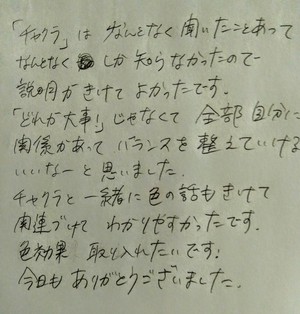 「チャクラ」は なんとなく 聞いたことあって
なんとなく しか 知らなかったので
説明がきけて よかったです。
「どれが大事!」じゃなくて 全部 自分に
関係があって バランスを 整えていける
いいなーと 思いました。
チャクラと 一緒に 色の話も きけて
関連づけて わかりやすかったです。
色効果 取り入れたいです。
今日も ありがとうございました。